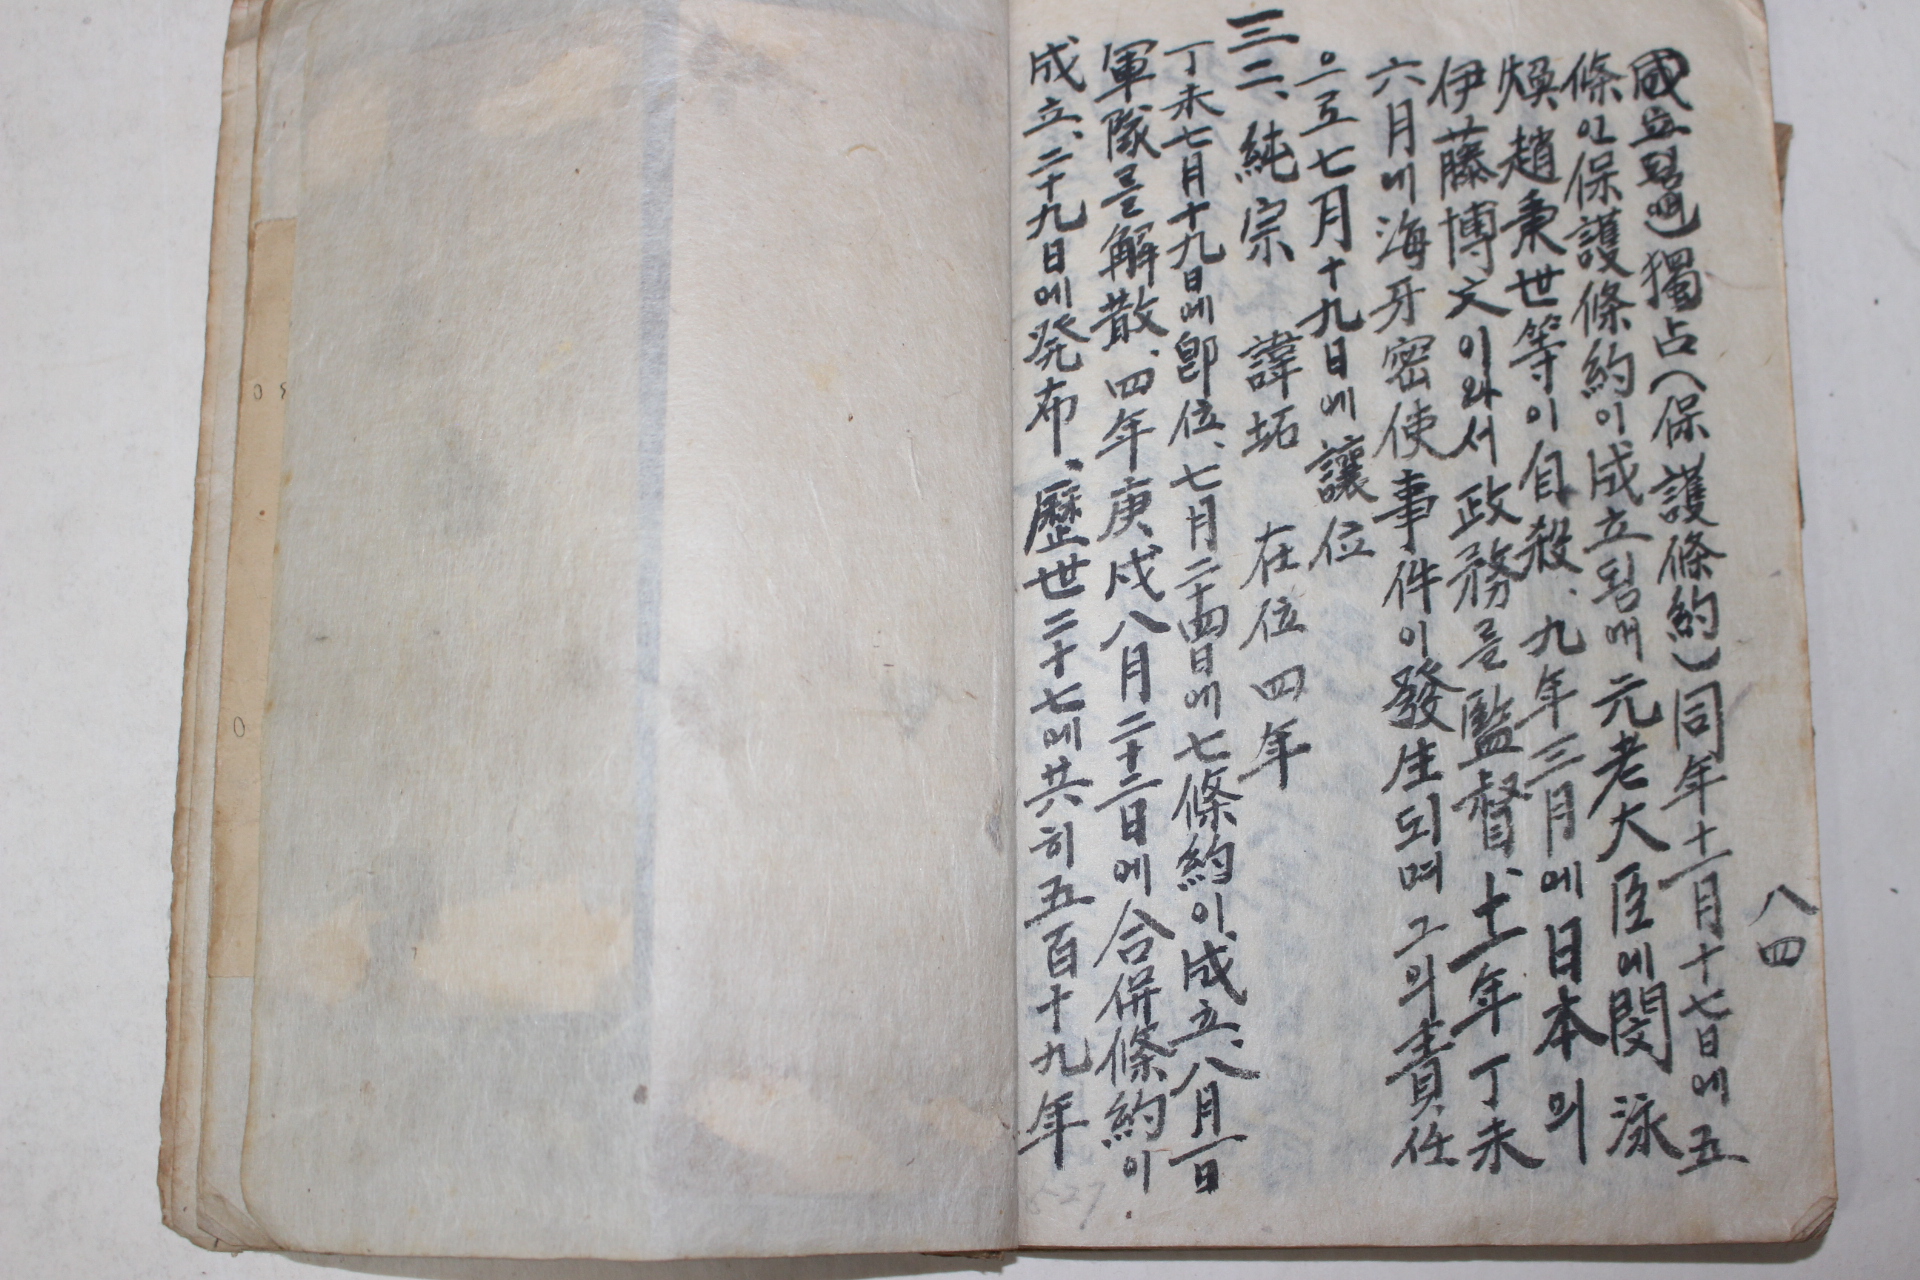 八四
成立됨매獨占(保護條約)同年十一月十七日에五
條인保護條約이成立됨매元老大臣에閔泳
煥趙秉世等이自殺、九年三月에日本의
伊藤博文이와서政務를監督、十一年丁未
六月에海牙密使事件이發生되며그의責任
으로七月十九日에讓位
三二、純宗 諱坧 在位四年
丁未七月十九日에卽位、七月二十四日에七條約이成立、八月一日
軍隊를解散、四年庚戌八月二十二日에合併條約이
成立、二十九日에発布、歷世二十七에共히五百十九年